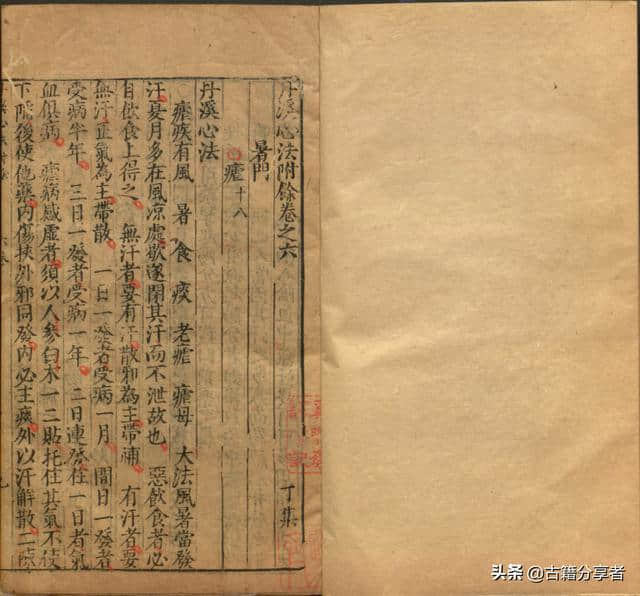 丹溪心法附餘卷之六　丁集
暑門
瘧十八
丹溪心法
瘧疾有風　暑　食　痰　老瘧　瘧母　大法風暑當發
汗夏月多在風凉處歇遂閉其汗而不泄故也　惡飲食者必
自飲食上得之　無汗者要有汗散邪為主帶補　有汗者要
無汗正氣為主帶散　一日一發者受病一月　間日一發者
受病半年　三日一發者受病一年　二日連發住一日者氣
血俱病　瘧病感虛者須以人參白朮一二貼托住其氣不使
下陷後使他藥內傷挾外邪同發內必主痰外以汗解散二陳
头条 @古籍分享者